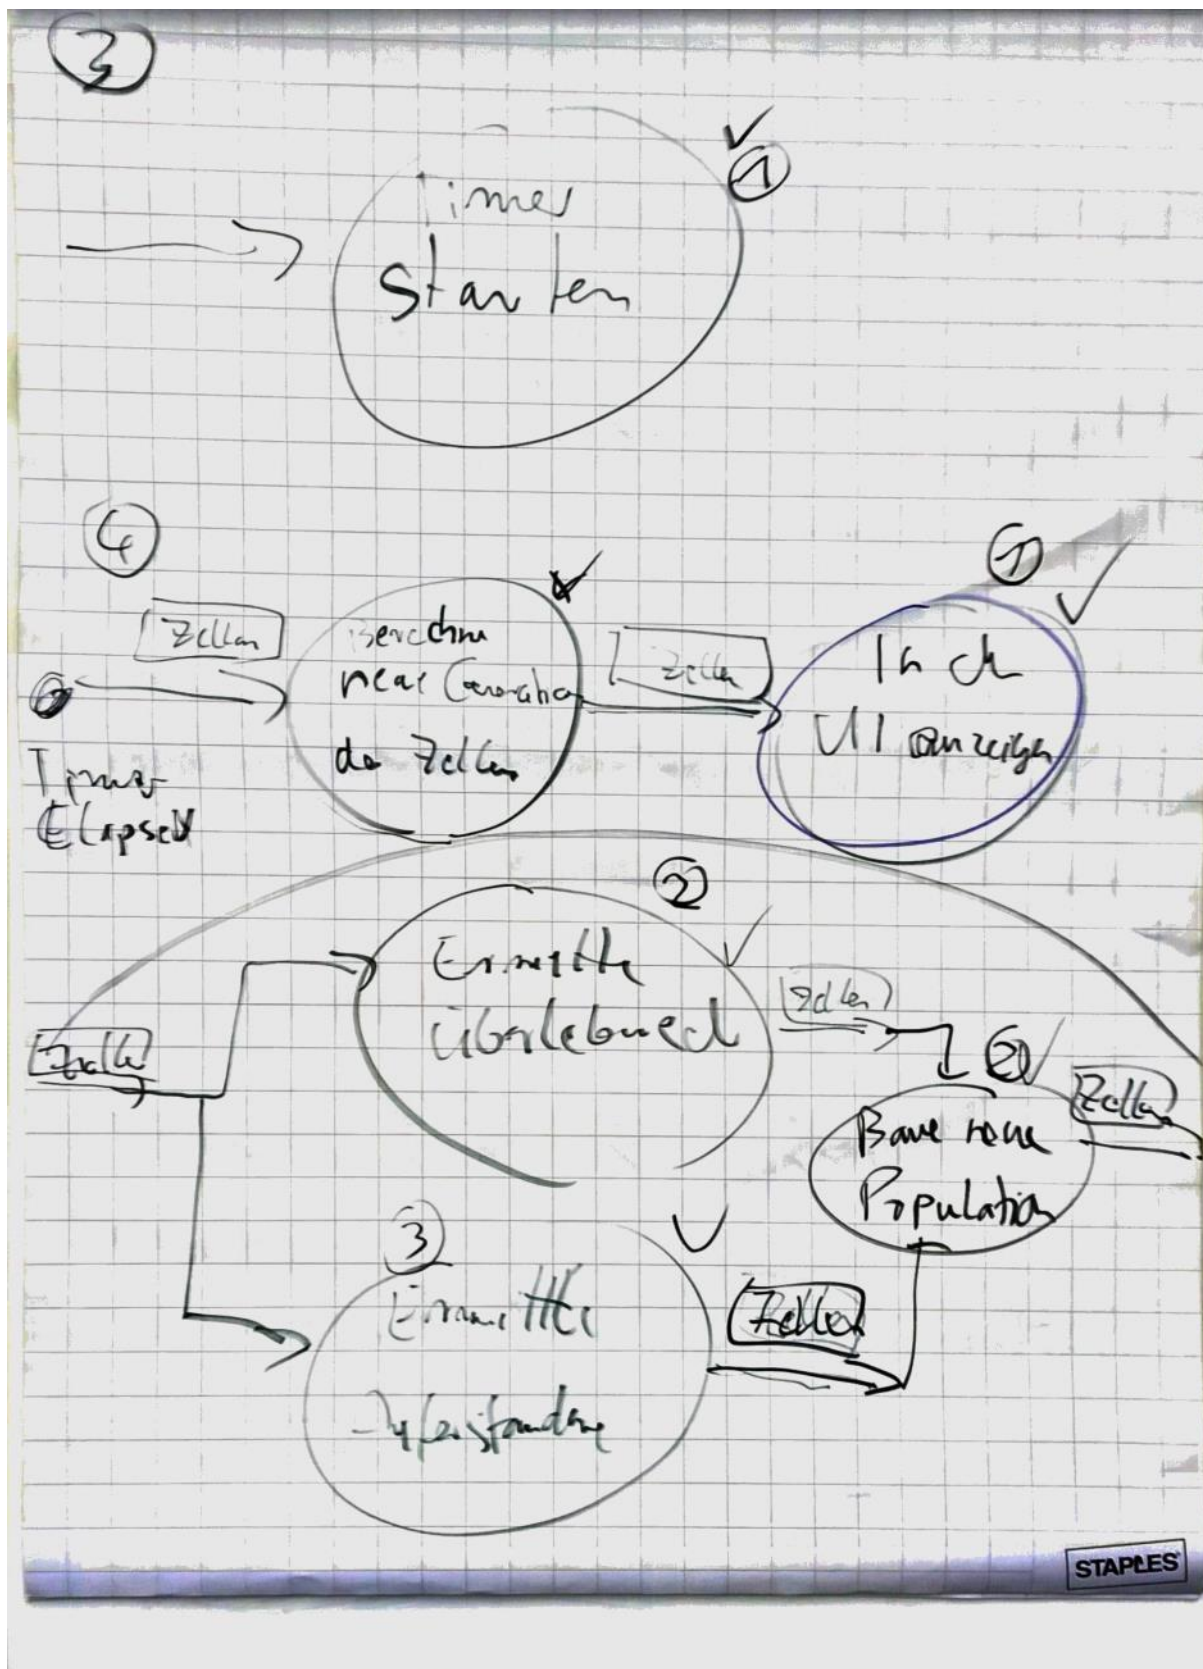 3
1
Timer
starten
4
1
Zellen
Berechne
neue Generation
der Zellen
Zellen
In der
UI anzeigen
Timer
Elapsed
2
Ermittle
Überlebende
Zellen
Zellen
Zellen
Baue neue
Population
3
Ermittle
Auferstandene
Zellen
STAPLES